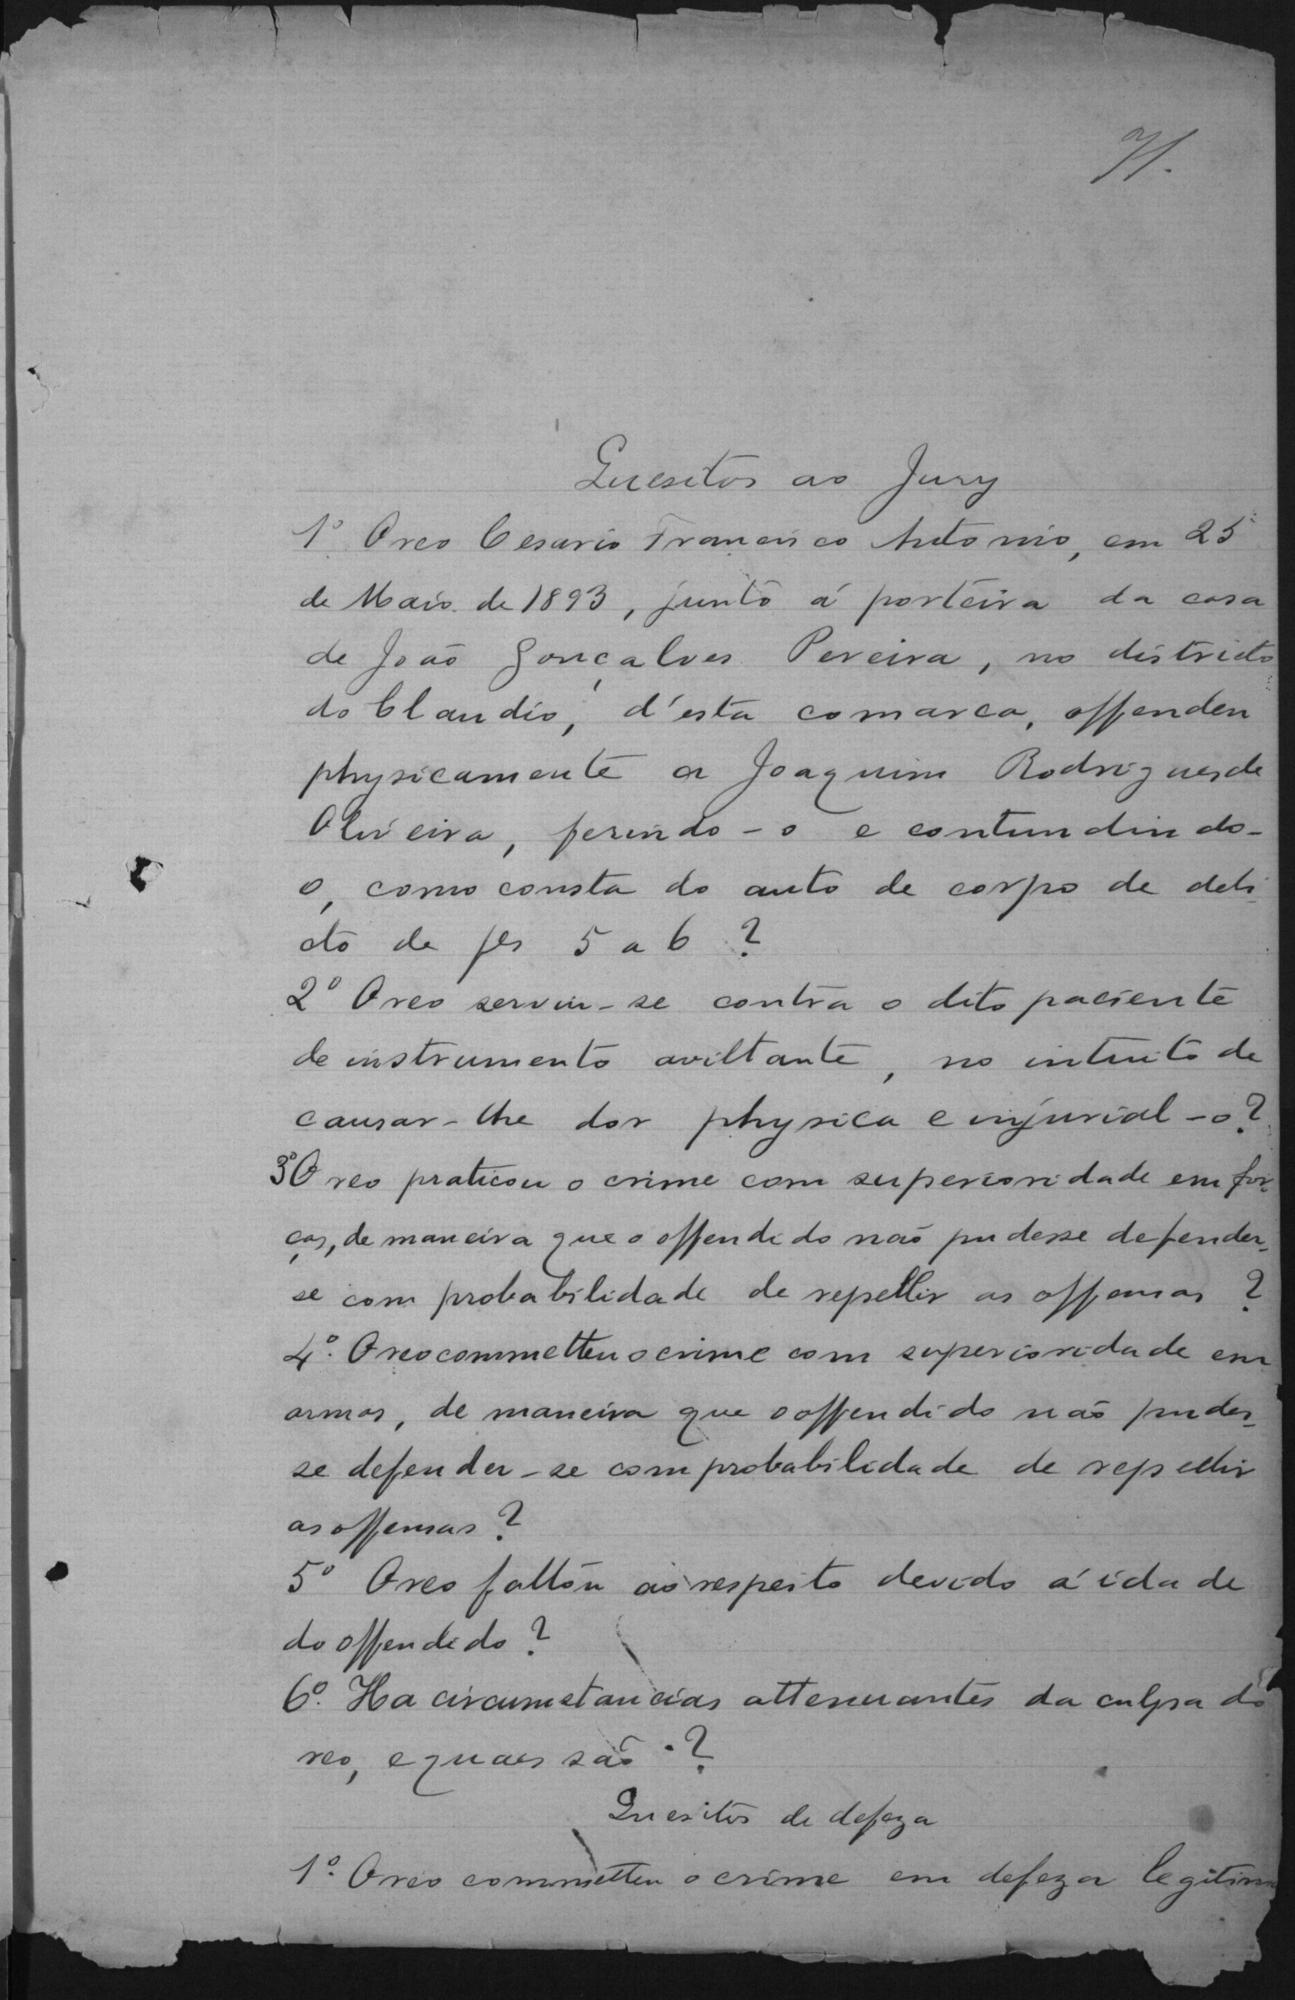 71.
Quesitos ao Jury
1º O reo Cesario Francisco Antonio, em 25
de Maio de 1893, junto á porteira da casa
de João Gonçalves Pereira, no districto
do Claudio, d'esta comarca, offendeu
physicamente a Joaquim Rodrigues de
Oliveira, ferindo-o e contundindo-
o, como consta do auto de corpo de deli-
cto de fls 5 a 6 ?
2º O reo serviu-se contra o dito paciente
de instrumento aviltante, no intuito de
causar-lhe dor physica e injurial-o?
3º O reo praticou o crime com superioridade em for-
ças, de maneira que o offendido não pudesse defender-
se com probabilidade de repellir as offensas ?
4º. O reo commetteu o crime com superioridade em
armas, de maneira que o offendido não pudes-
se defender-se com probabilidade de repellir
as offensas?
5º O reo faltou ao respeito devido á idade
do offendido?
6º. Ha circumstancias attenuantes da culpa do
reo, e quaes são ?
Quesitos de defeza
1º. O reo commetteu o crime em defeza legitima